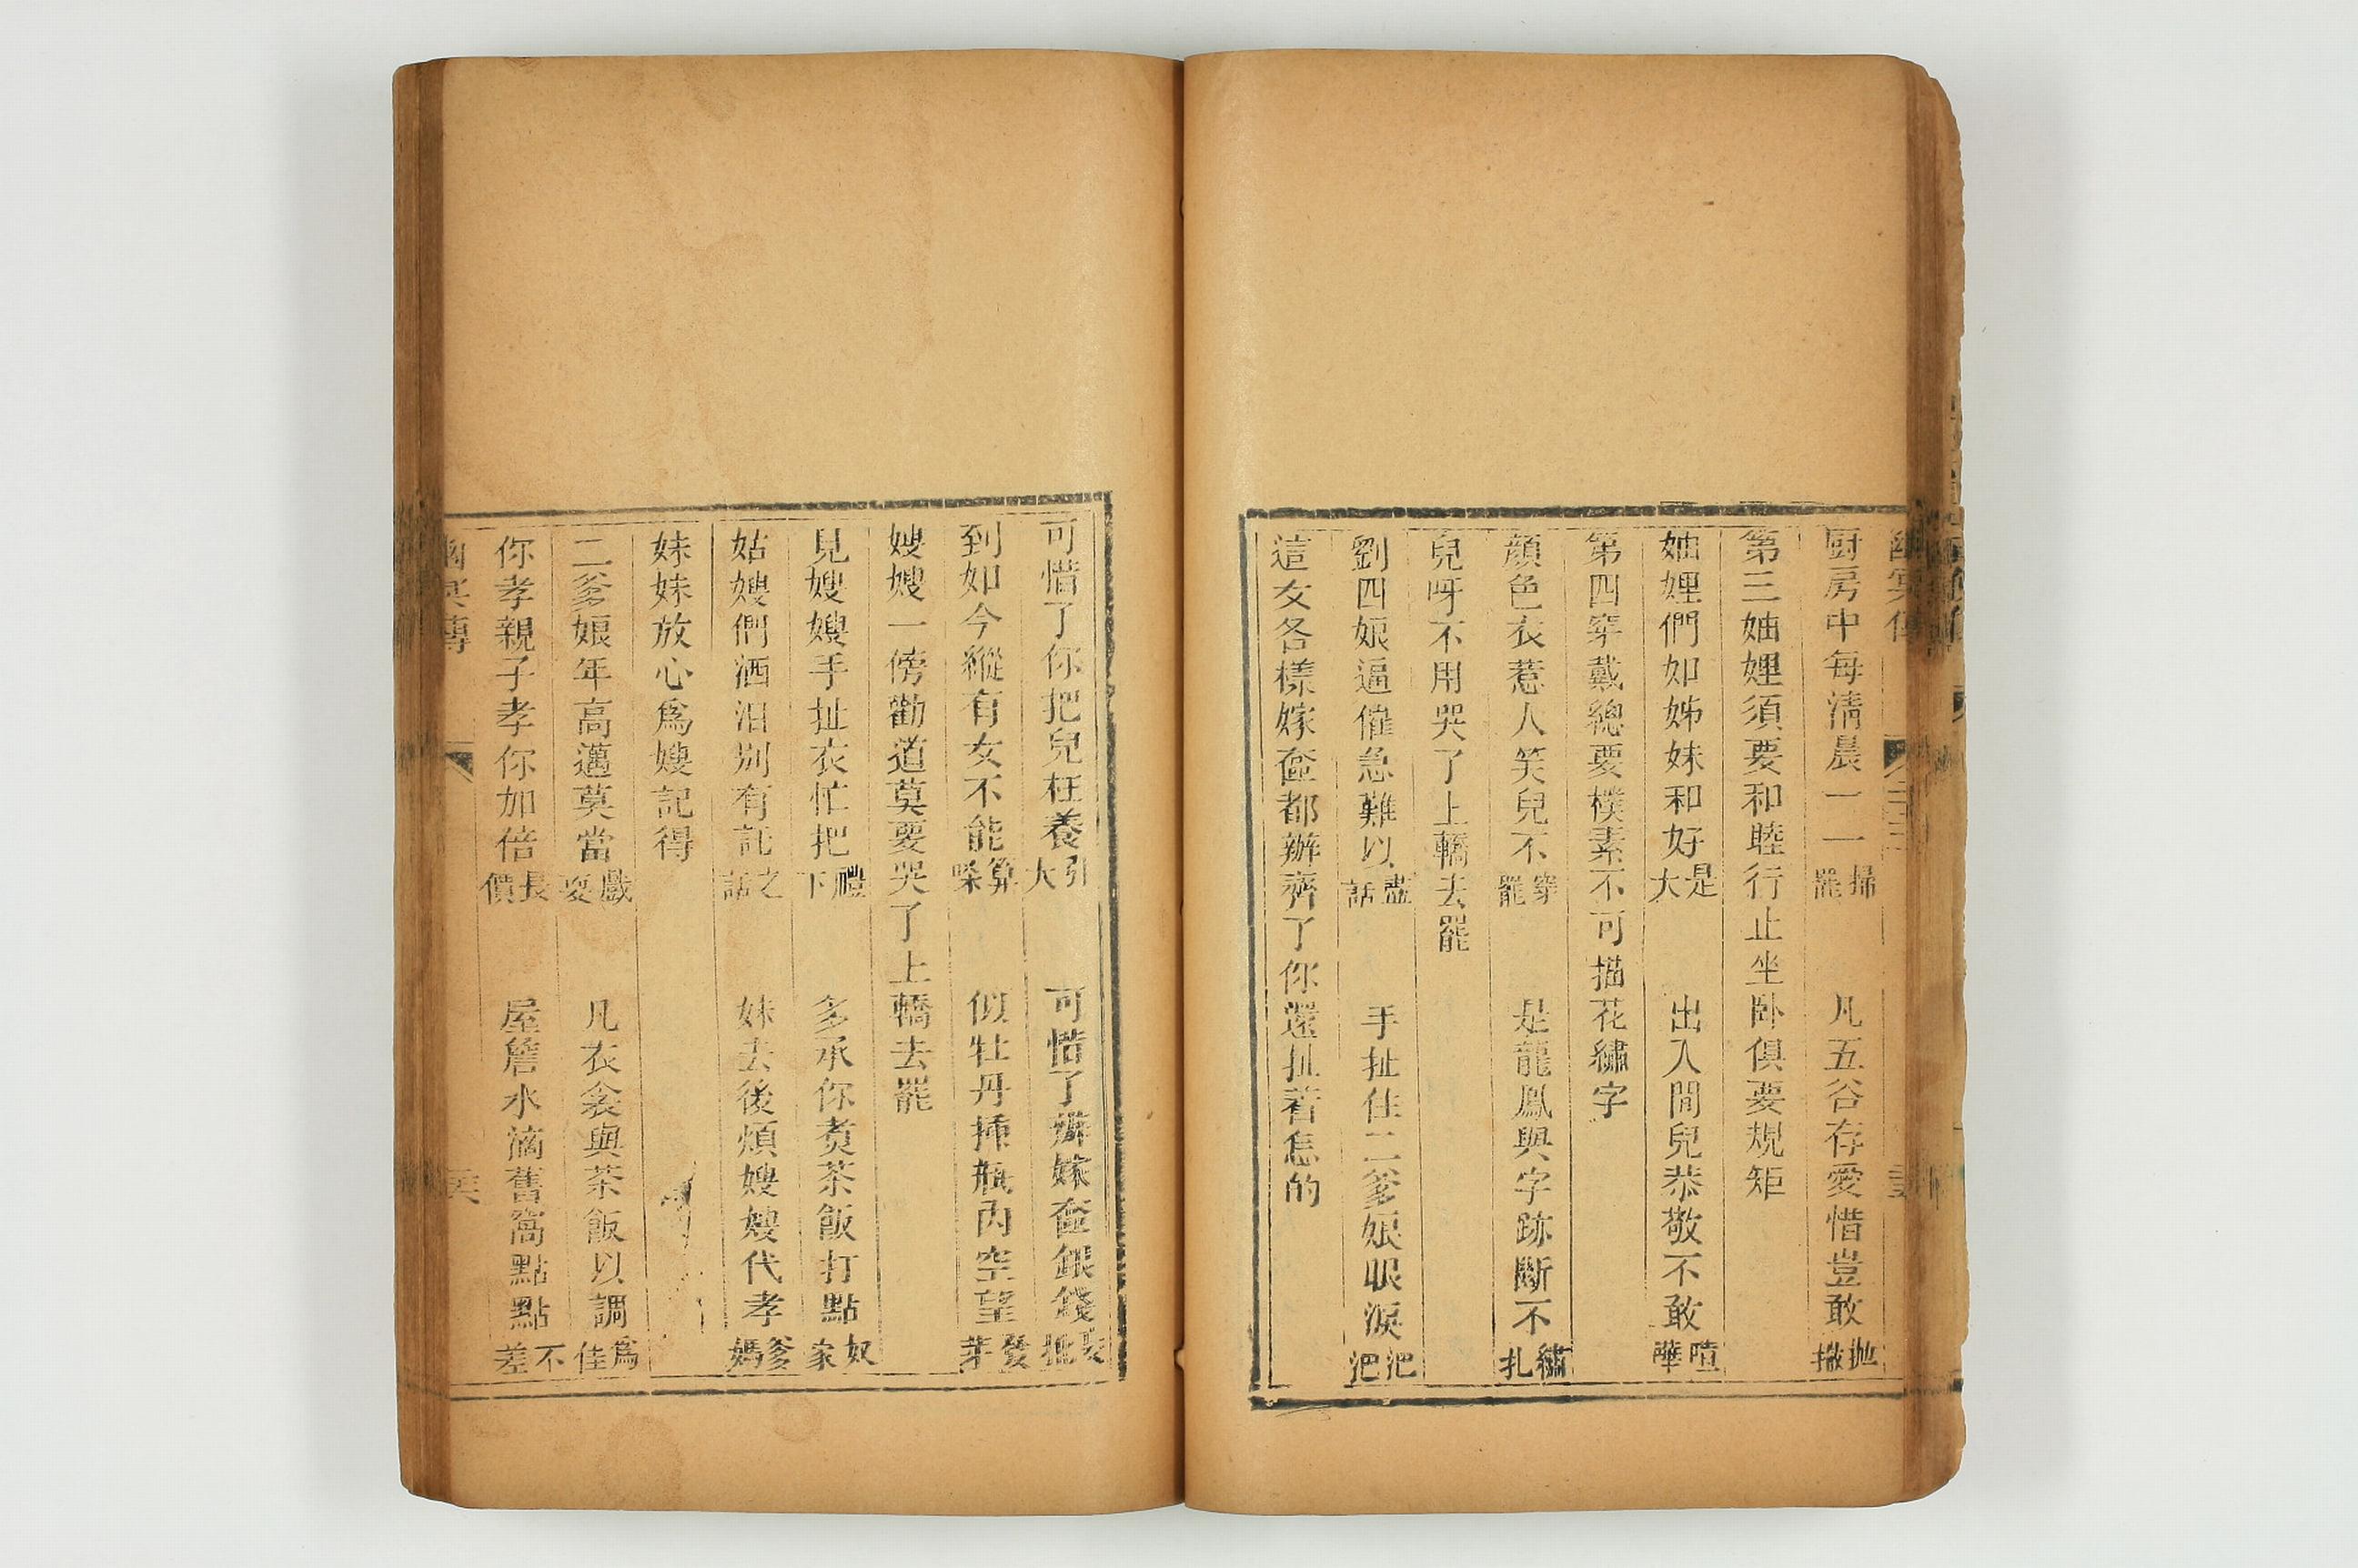 厨房中每清晨一一掃罷　凡五谷存愛惜豈敢拋撒
第三妯娌須要和睦行止坐卧俱要規矩
妯娌們如姊妹和好是大　出入間兒恭敬不敢喧嘩
第四穿戴總要樸素不可描花繡字
顏色衣惹人笑兒不穿罷　是龍鳳與字跡斷不繡扎
兒呀不用哭了上轎去罷
劉四娘逼催急難以盡話　手扯住二爹娘眼淚汜汜
這女各樣嫁奩都辦齊了你還扯著怎的
可惜了你把兒枉養引大　可惜了辦嫁奩銀錢
到如今縱有女不能算喍　似牡丹揷瓶內空望發芽
嫂嫂一傍勸道莫要哭了上轎去罷
見嫂嫂手扯衣忙把禮下　多承你煑茶飯打點奴家
姑嫂們洒泪別有託之話　妹去後煩嫂嫂代孝爹媽
妹妹放心爲嫂記得
二爹娘年高邁莫當戲耍　凡衣衾與茶飯以調爲佳
你孝親子孝你加倍長價　屋簷水滴舊窩點點不差
幽冥傳